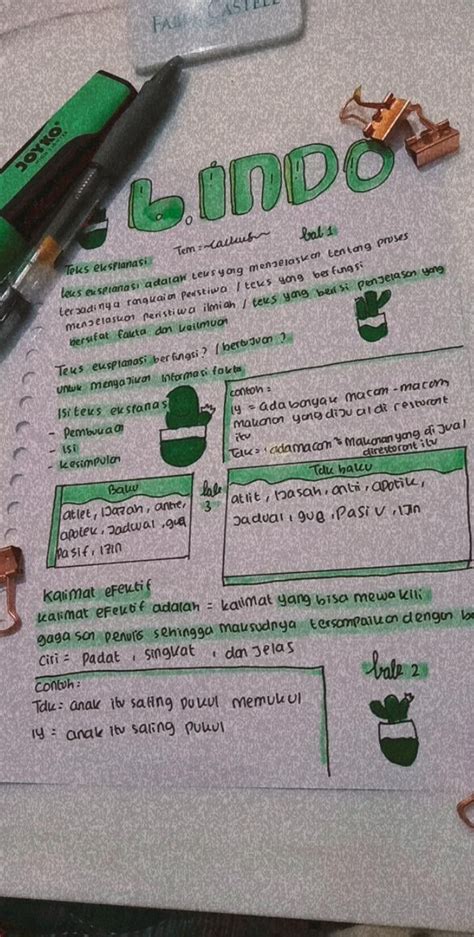 FABER CASTELL
JOYKO
b.indo
Tem = cactus
bab 1
Teks eksplanasi
teks eksplanasi adalah teks yang menjelaskan tentang proses
terjadinya rangkaian peristiwa / teks yang berfungsi
menjelaskan peristiwa ilmiah / teks yang berisi penjelasan yang
bersifat fakta dan keilmuan
Teks eksplanasi berfungsi? / bertujuan?
untuk mengajikan informasi fakta
Isi teks eksplanasi
- Pembukaan
- Isi
- Kesimpulan
contoh :
iy = ada banyak macam - macam
makanan yang dijual di restorant
itu
Tdk = adamacam² Makanan yang di jual
direstorant itu
Baku
atlet, ijazah, antre,
apotek, jadwal, gua
pasif, izin
bab
3
Tdk baku
atlit, ijasah, antri, apotik,
jadual, gug, Pasiv, ijin
Kalimat efektif
kalimat efektif adalah = kalimat yang bisa mewakili
gagasan penulis sehingga maksudnya tersampaikan dengan
Ciri = Padat, singkat, dan jelas
bab 2
Contoh :
Tdk = anak itu saling pukul memukul
iy = anak itu saling pukul